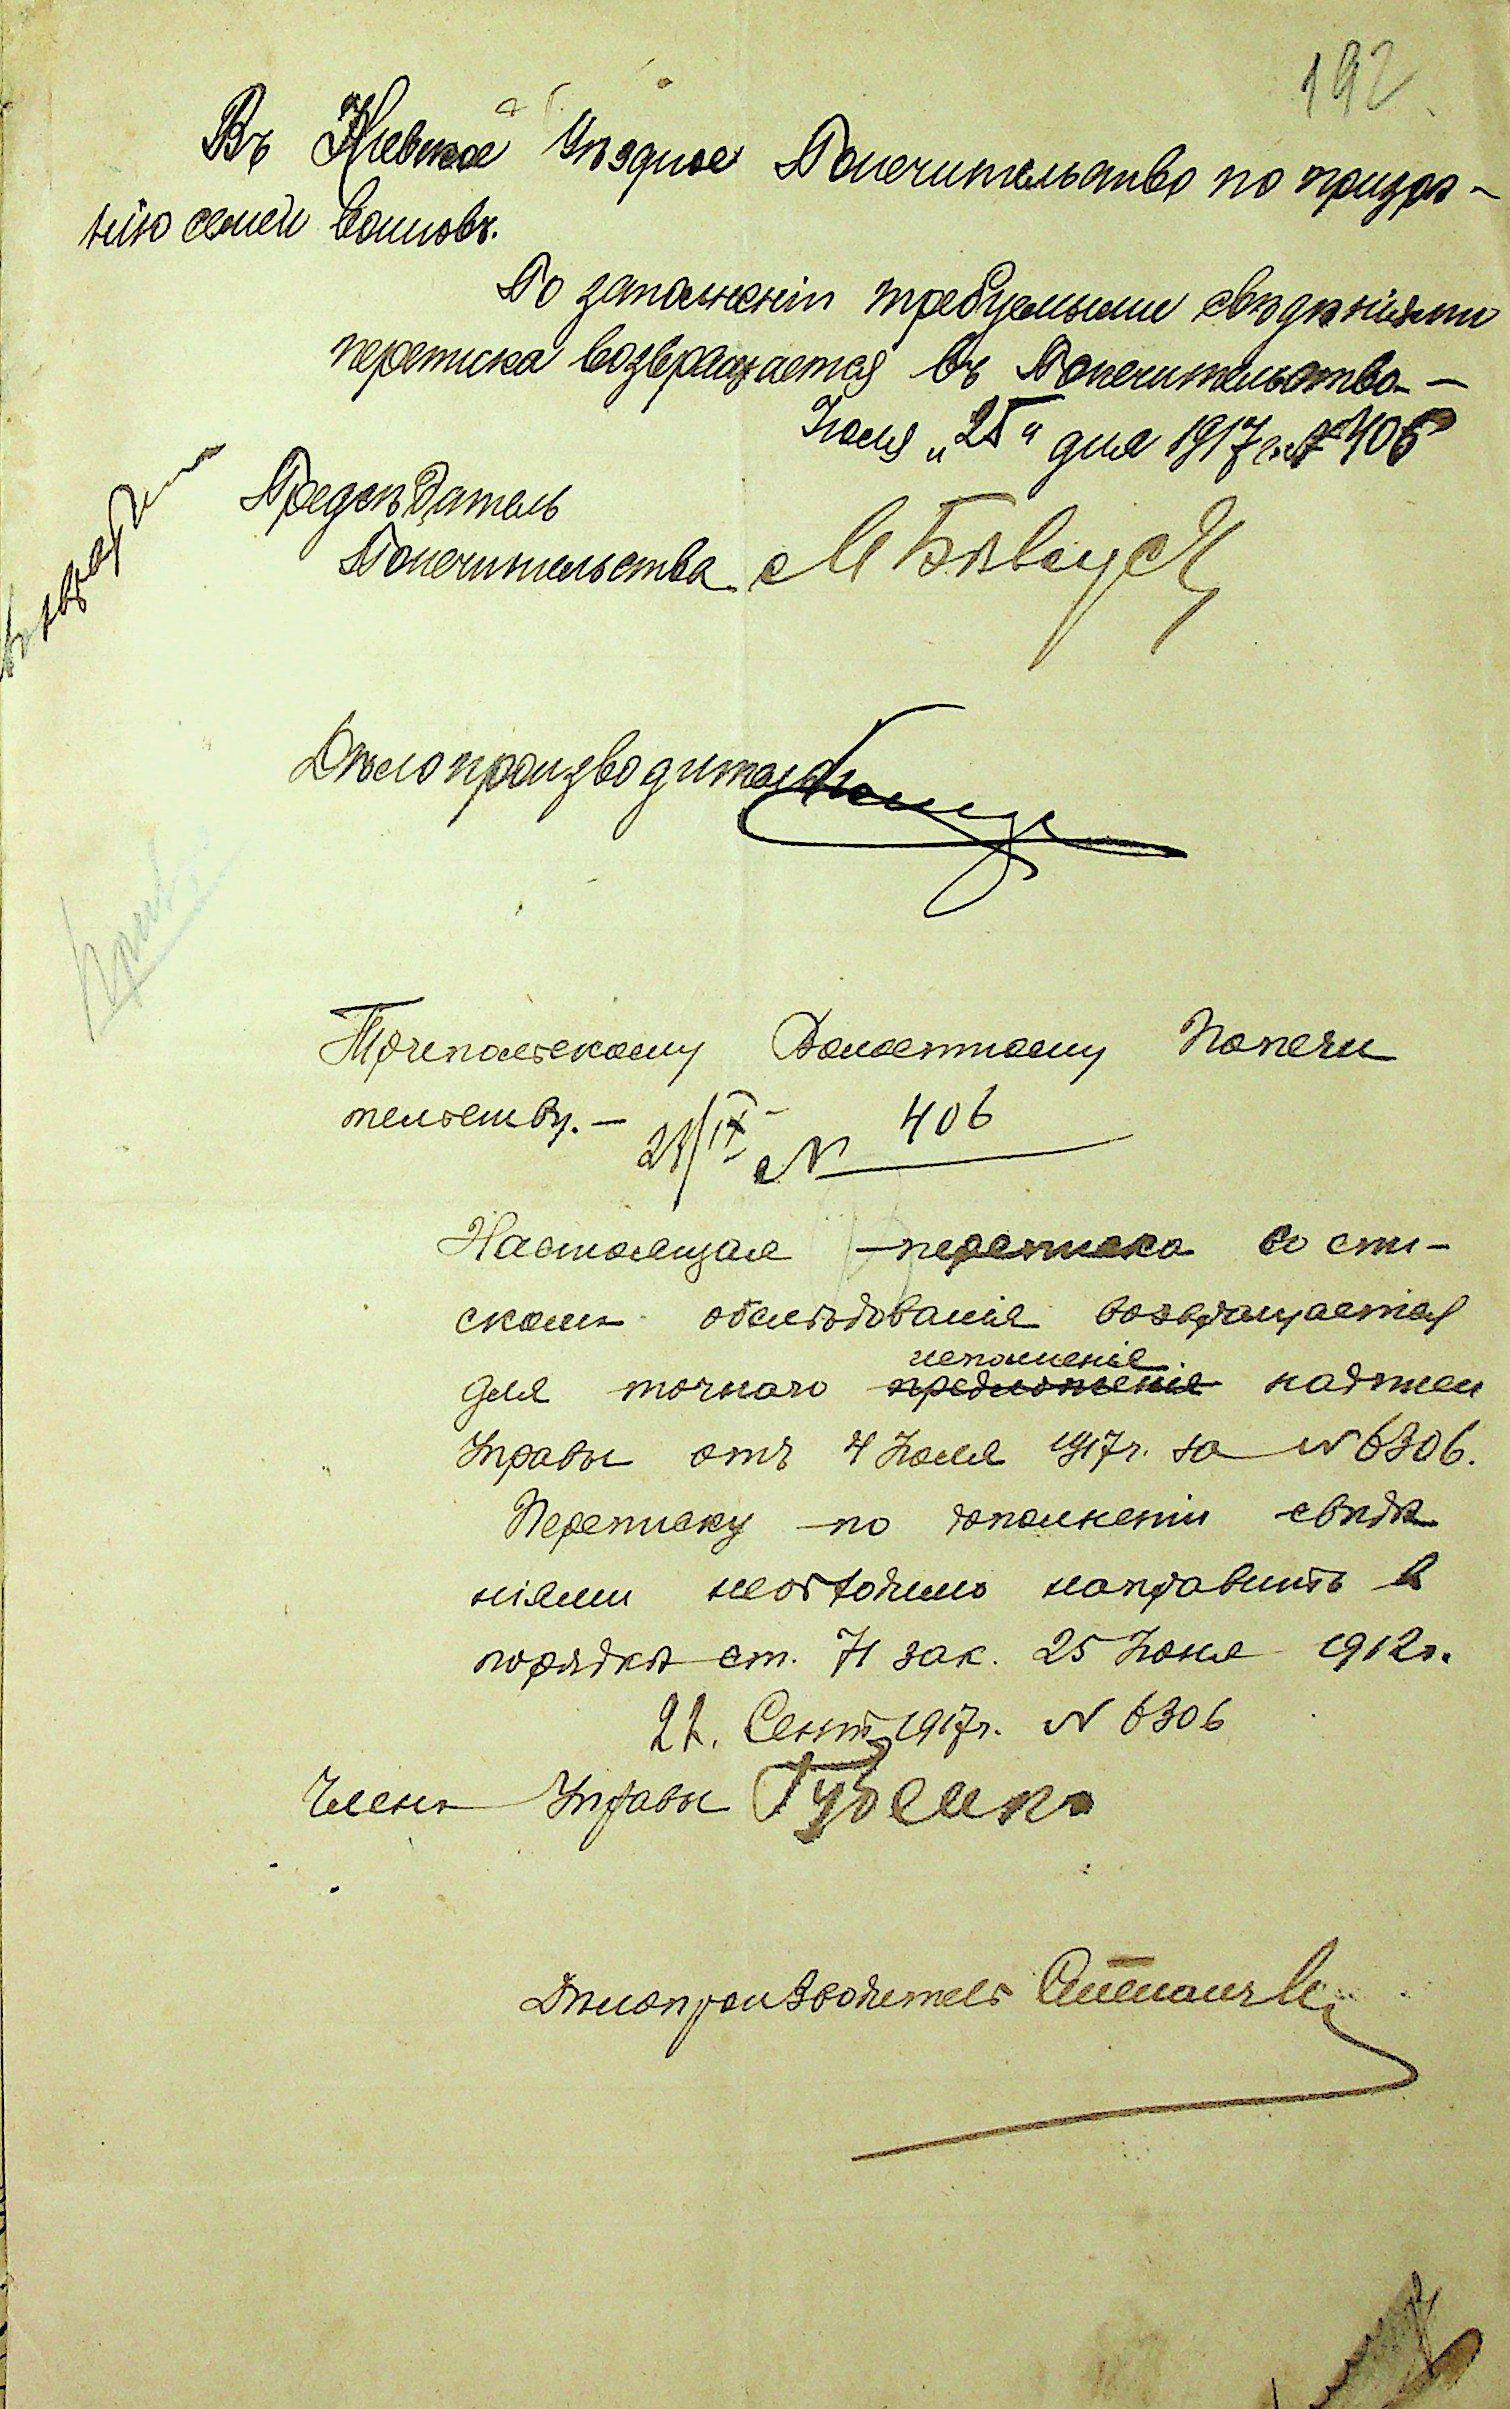 192
Въ Кіевское Уѣздное Попечительство по призрѣ-
нію семей воиновъ.
По заполненіи требуемыми свѣдѣніями
переписка возвращается въ Попечительство. —
Іюля „25" дня 1917 г. № 406
Предсѣдатель
Попечительства
Дѣлопроизводитель
Возвратить
Трипольскому Волостному Попечи
тельству. —
23/IX № 406
Настоящая переписка со спи-
скомъ обслѣдованія возвращается
исполненія
для точнаго предложенія надписи
Управы отъ 4 Іюля 1917 г. за № 6306.
Переписку по дополненіи свѣдѣ
ніями необходимо направить в
порядкѣ ст. 71 зак. 25 Іюня 1912 г.
22. Сент 1917 г. № 6306
Членъ Управы
Дѣлопроизводитель